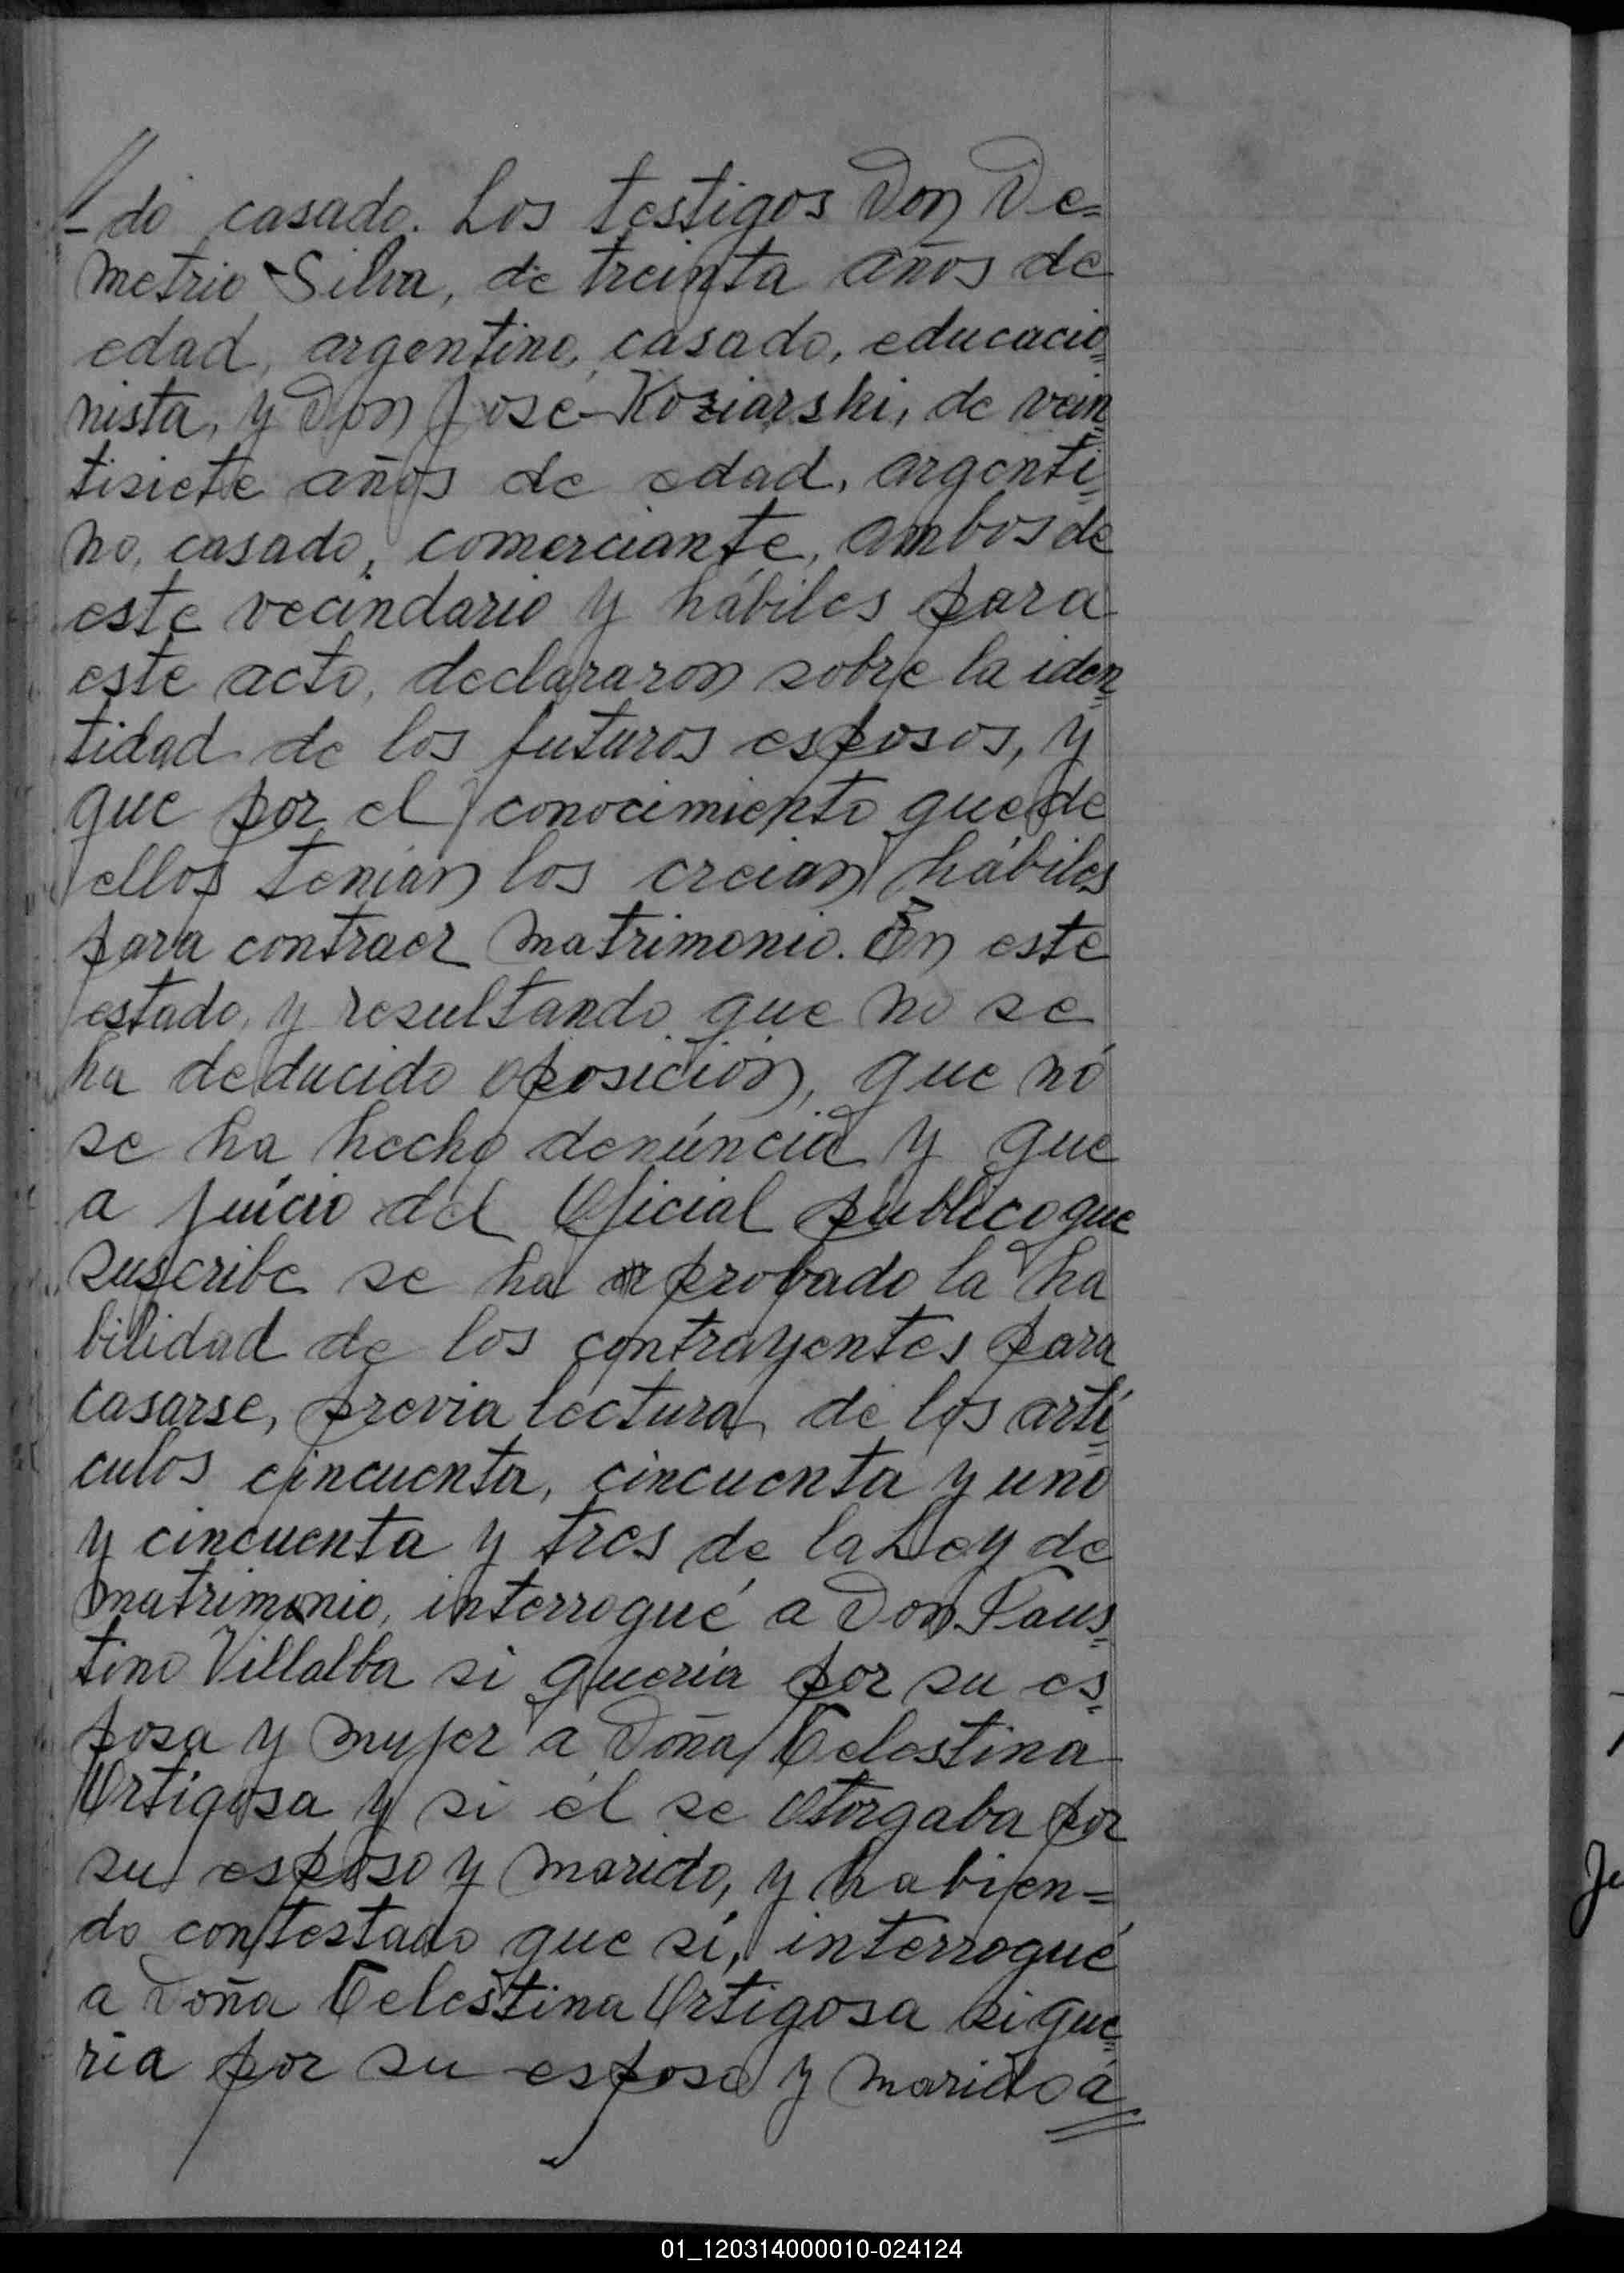 -do casado. Los testigos Don De=
metrio Silva, de treinta años de
edad, argentino, casado, educacio=
nista, y Don José Koziarski, de vein=
tisiete años de edad, argenti=
no, casado, comerciante, ambos de
este vecindario y hábiles para
este acto, declararon sobre la iden=
tidad de los futuros esposos, y
que por el conocimiento que de
ellos tenian los creian hábiles
para contraer matrimonio. En este
estado, y resultando que no se
ha deducido oposición, que nó
se ha hecho denúncia y que
a juício del Oficial publico que
suscribe se ha probado la ha
bilidad de los contrayentes para
casarse, previa lectura de los artí=
culos cincuenta, cincuenta y uno
y cincuenta y tres de la Ley de
matrimonio, interrogué a Don Faus=
tino Villalba si queria por su es=
posa y mujer a Doña Celestina
Ortigosa y si él se otorgaba por
su esposo y marido, y habien=
do contestado que sí, interrogué
a Doña Celestina Ortigosa si que=
ria por su esposo y marido á
Ju
01_120314000010-024124